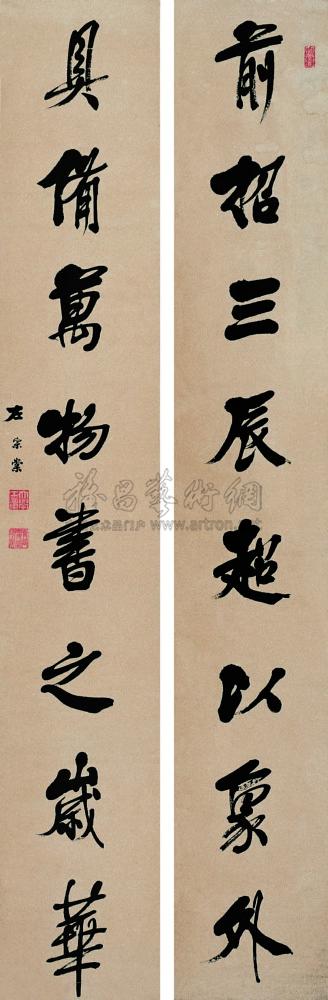 前招三辰超以象外
具備萬物書之歲華
左宗棠
雅昌藝術網
www.artron.net